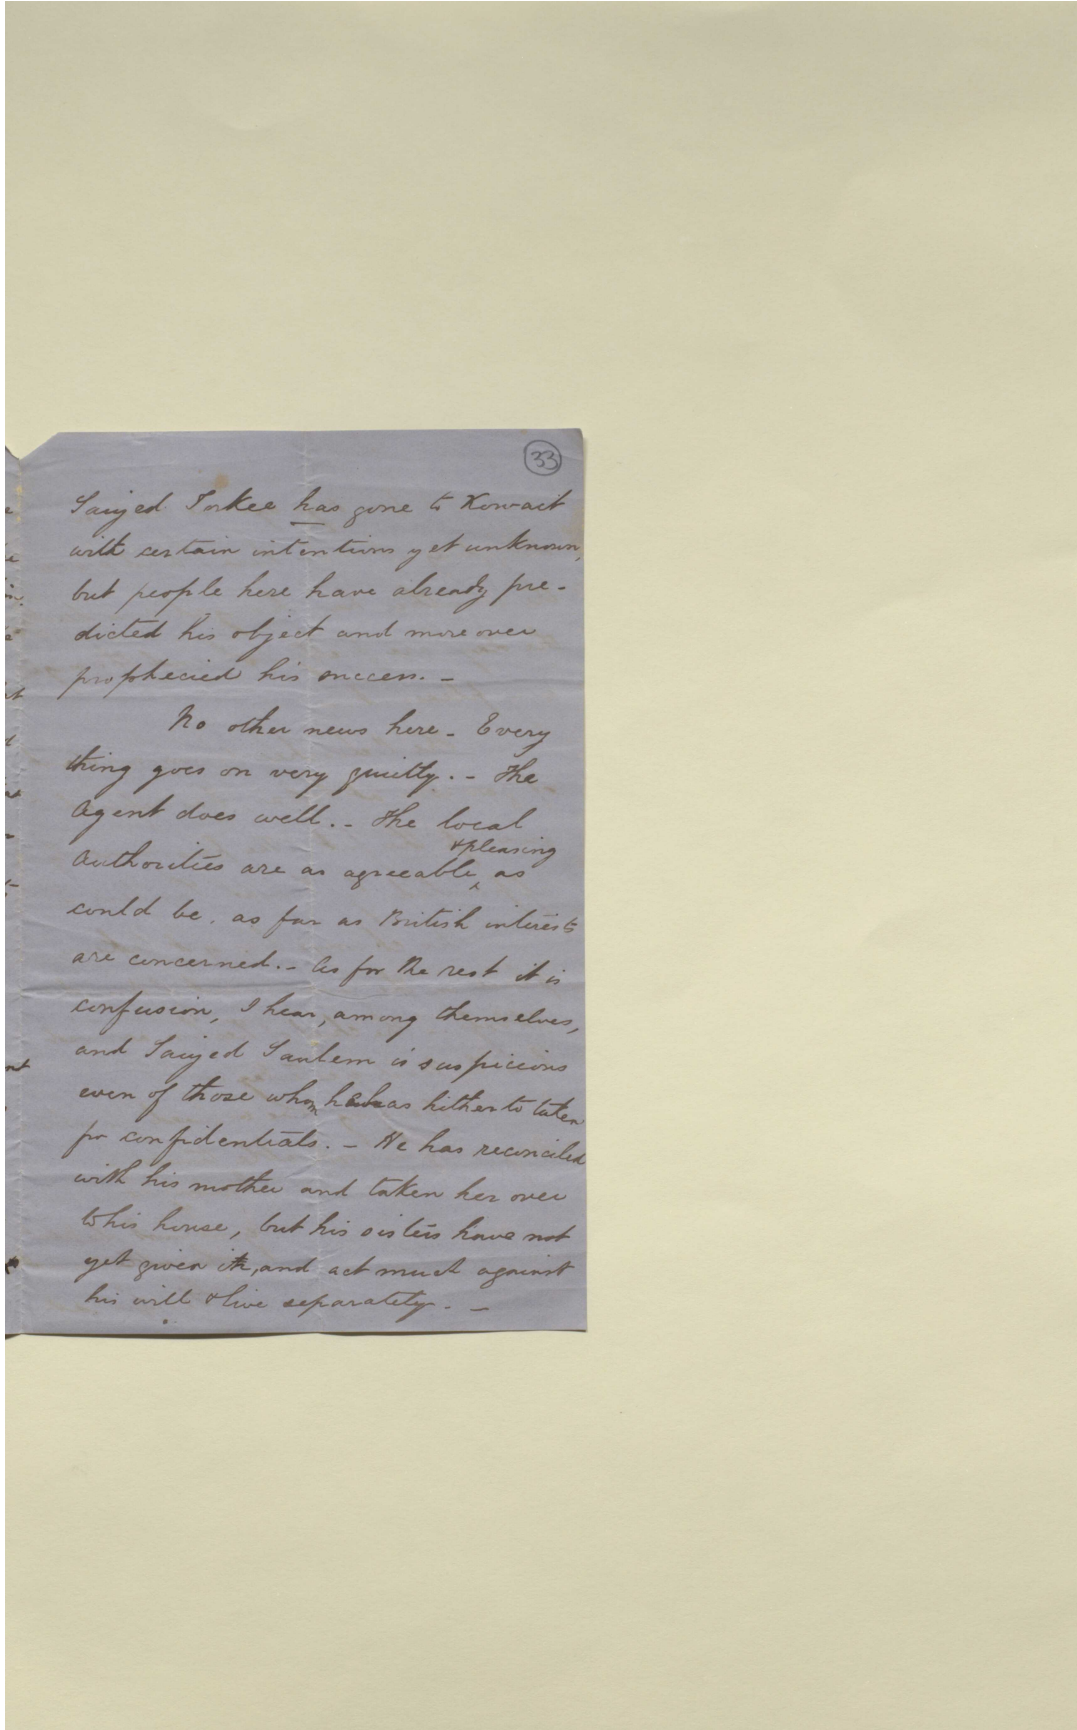 33
Saiyed Torkee has gone to Kowait
with certain intentions yet unknown,
but people here have already pre-
dicted his object and moreover
prophecied his success. -
No other news here - Every
thing goes on very quietly. - The
Agent does well. - The local
& pleasing
Authorities are as agreeable, as
could be. as far as British interests
are concerned. - As for the rest it is
confusion, I hear, among themselves,
and Saiyed Saulem is suspicious
even of those whom he has hitherto taken
for confidentials. - He has reconciled
with his mother and taken her over
to his house, but his sisters have not
yet given in, and act much against
his will & live separately. -